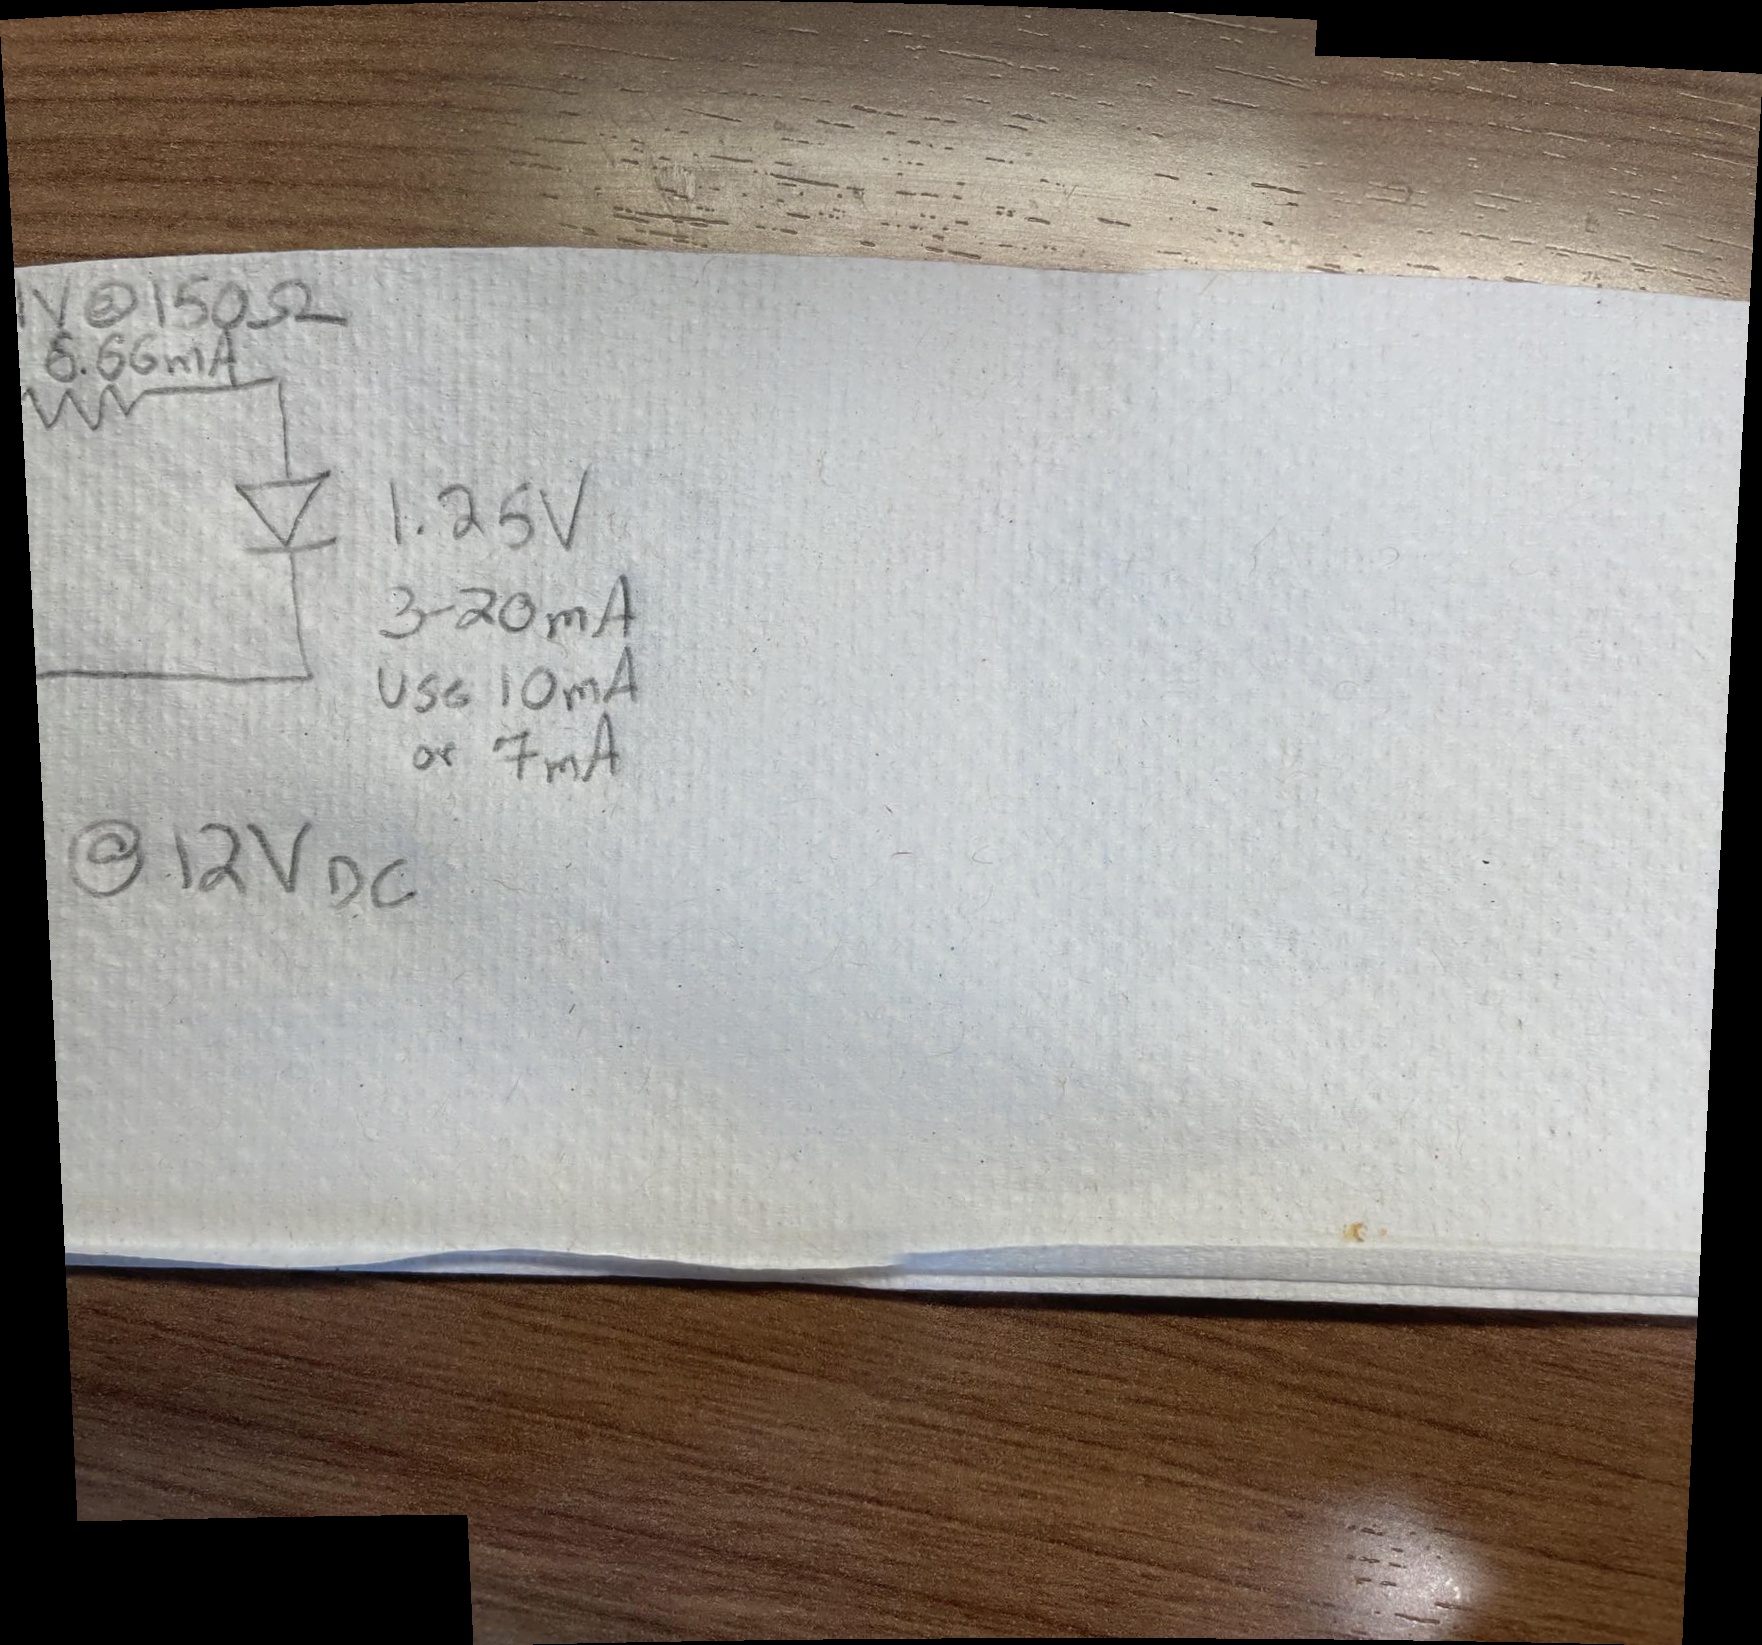 1V@150Ω
6.66mA
1.25V
3-20mA
USE 10mA
or 7mA
@ 12VDC